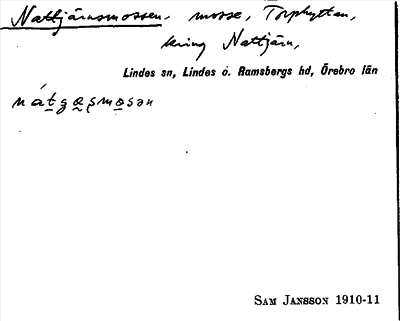 Nattjärnsmossen. mosse, Torphyttan,
kring Nattjärn,
Lindes sn, Lindes o. Ramsbergs hd, Örebro län
SAM JANSSON 1910-11